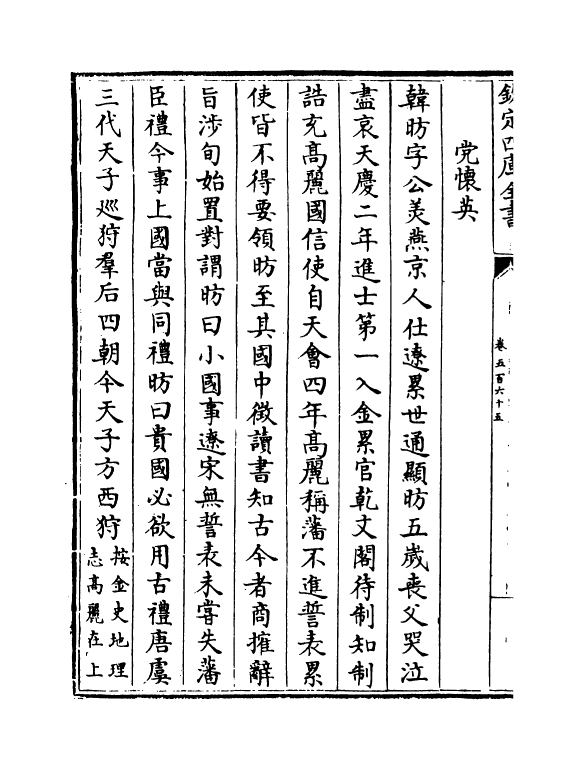 欽定四庫全書
卷五百六十五
党懷英
韓昉字公美燕京人仕遼累世通顯昉五歲喪父哭泣
盡哀天慶二年進士第一入金累官乾文閣待制知制
誥充高麗國信使自天會四年高麗稱藩不進誓表累
使皆不得要領昉至其國中徵讀書知古今者商搉辭
旨涉旬始置對謂昉曰小國事遼宋無誓表未嘗失藩
臣禮今事上國當與同禮昉曰貴國必欲用古禮唐虞
三代天子廵狩羣后四朝今天子方西狩
按金史地理
志高麗在上